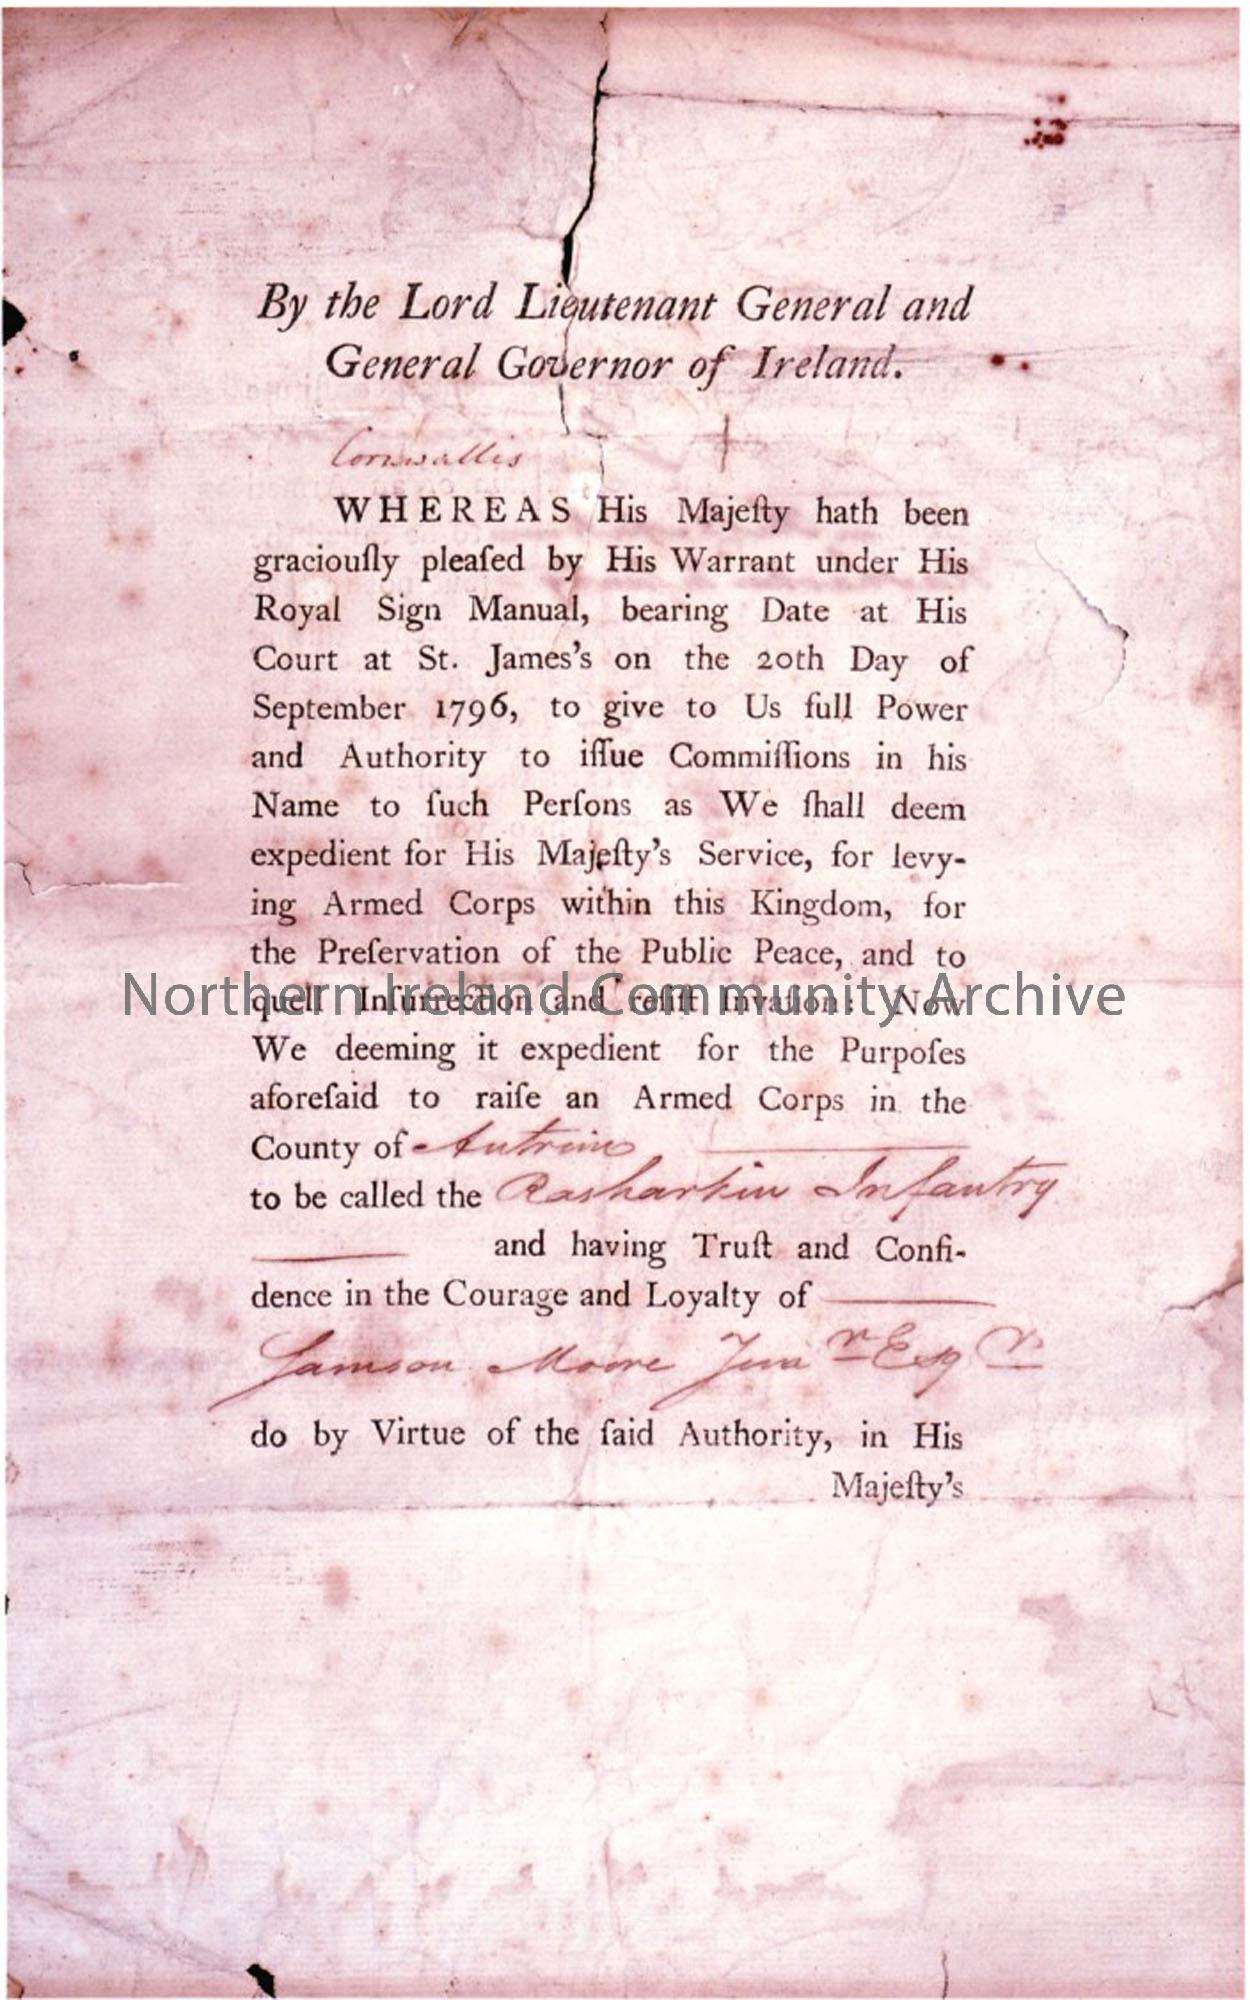 By the Lord Lieutenant General and
General Governor of Ireland.
Cornwallis
WHEREAS His Majeſty hath been
graciouſly pleaſed by His Warrant under His
Royal Sign Manual, bearing Date at His
Court at St. James's on the 20th Day of
September 1796, to give to Us full Power
and Authority to iſſue Commiſſions in his
Name to ſuch Perſons as We ſhall deem
expedient for His Majeſty's Service, for levy-
ing Armed Corps within this Kingdom, for
the Preſervation of the Public Peace, and to
Northern Ireland Community Archive
quell Inſurrection and reſiſt Invaſion: Now
We deeming it expedient for the Purpoſes
aforeſaid to raiſe an Armed Corps in the
County of Antrim
to be called the Rasharkin Infantry
and having Truſt and Confi-
dence in the Courage and Loyalty of
Samson Moore Junr Esqr
do by Virtue of the ſaid Authority, in His
Majeſty's